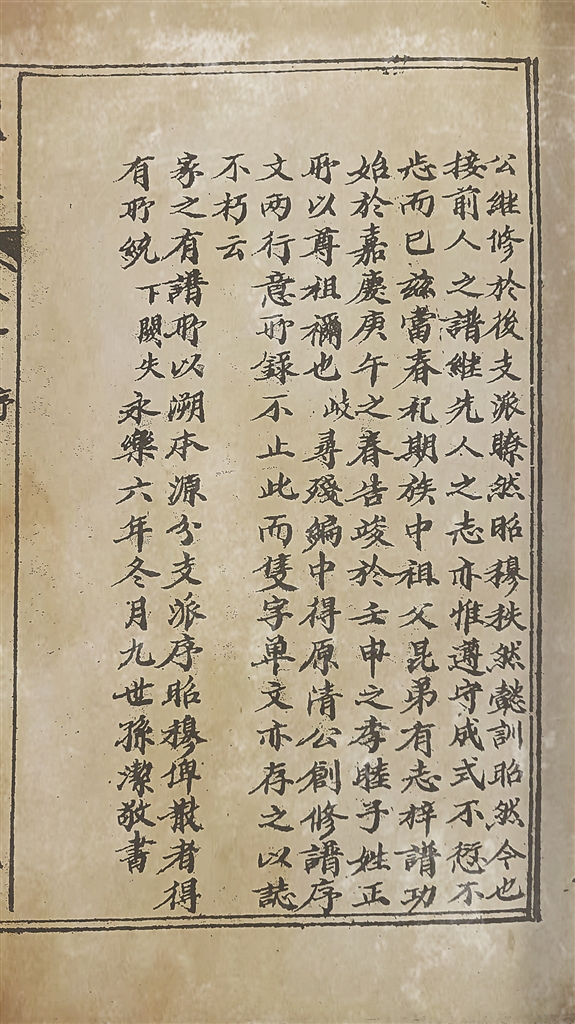 公継修於後支派瞭然昭穆秩然懿訓昭然今也
接前人之譜継先人之志亦惟遵守成式不愆不
忘而已茲當春祀期族中祖父昆弟有志梓譜功
始於嘉慶庚午之春告竣於壬申之季睦乎姓正
所以尊祖禰也岐尋殘編中得原清公創修譜序
文两行意所錄不止此而隻字单文亦存之以誌
不朽云
家之有譜所以溯本源分支派序昭穆俾散者得
有所統下闕失永樂六年冬月九世孫潔敬書
序